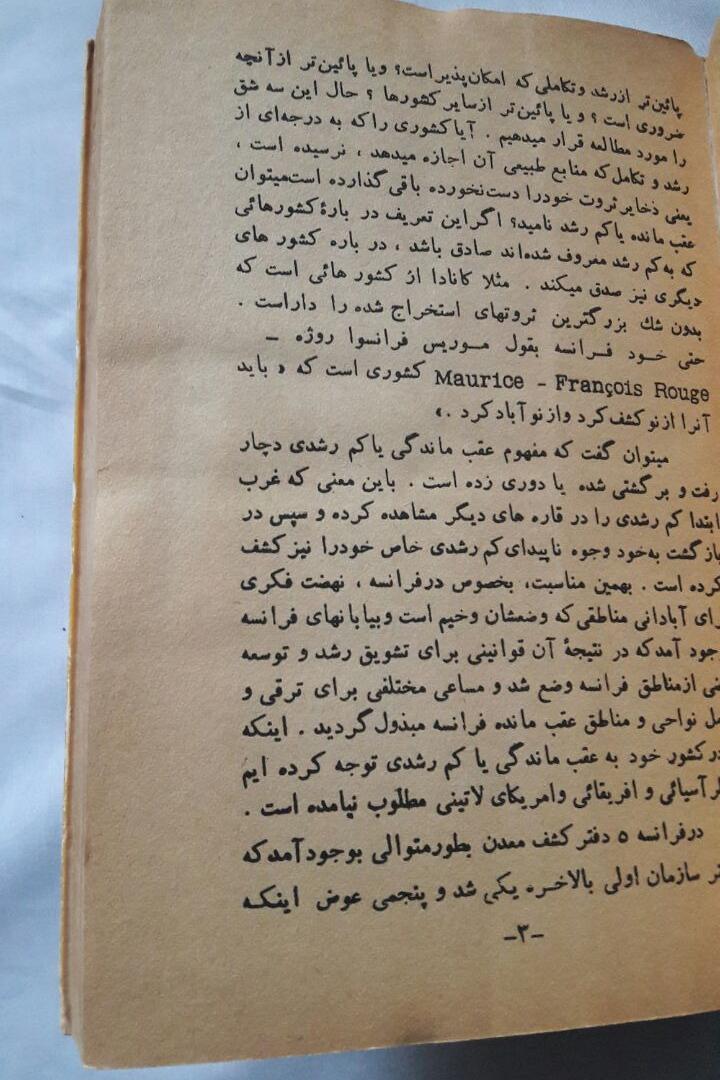 پائین‌تر ازرشد وتکاملی‌که امکان‌پذیراست؟ ویا پائین‌تر ازآنچه
ضروری است ؟ و یا پائین‌تر ازسایر کشورها ؟ حال این سه شق
را مورد مطالعه قرار میدهیم . آیاکشوری راکه به درجه‌ای از
رشد و تکامل‌که منابع طبیعی آن اجازه میدهد ، نرسیده است ،
یعنی ذخایرثروت خودرا دست‌نخورده باقی‌گذارده است‌میتوان
عقب مانده یاکم رشد نامید؟ اگراین تعریف در بارهٔ‌کشورهائی
که به‌کم رشد معروف شده‌اند صادق باشد ، در باره کشور های
دیگری نیز صدق میکند . مثلا کانادا از کشور هائی است که
بدون شك بزرگترین ثروتهای استخراج شده را داراست .
حتی خود فرانسه بقول موریس فرانسوا روژه –
Maurice - François Rouge کشوری است که « باید
آنرا ازنوکشف‌کرد وازنوآبادکرد .»
میتوان گفت که مفهوم عقب ماندگی یاکم رشدی دچار
رفت و برگشتی شده یا دوری زده است . باین معنی که غرب
ابتدا کم رشدی را در قاره های دیگر مشاهده کرده و سپس در
بازگشت به‌خود وجوه ناپیدای‌کم رشدی خاص خودرا نیزکشف
کرده است . بهمین مناسبت، بخصوص درفرانسه ، نهضت فکری
رای آبادانی مناطقی‌که وضعشان وخیم است وبیابانهای فرانسه
جود آمدکه در نتیجهٔ آن قوانینی برای تشویق رشد و توسعه
ازمناطق فرانسه وضع شد و مساعی مختلفی برای ترقی و
نواحی و مناطق عقب مانده فرانسه مبذول‌گردید . اینکه
درکشور خود به عقب ماندگی یا کم رشدی توجه کرده ایم
آسیائی و افریقائی وامریکای لاتینی مطلوب نیامده است .
درفرانسه ۵ دفترکشف معدن بطورمتوالی بوجودآمدکه
سازمان اولی بالاخره یکی شد و پنجمی عوض اینکه
–۳–